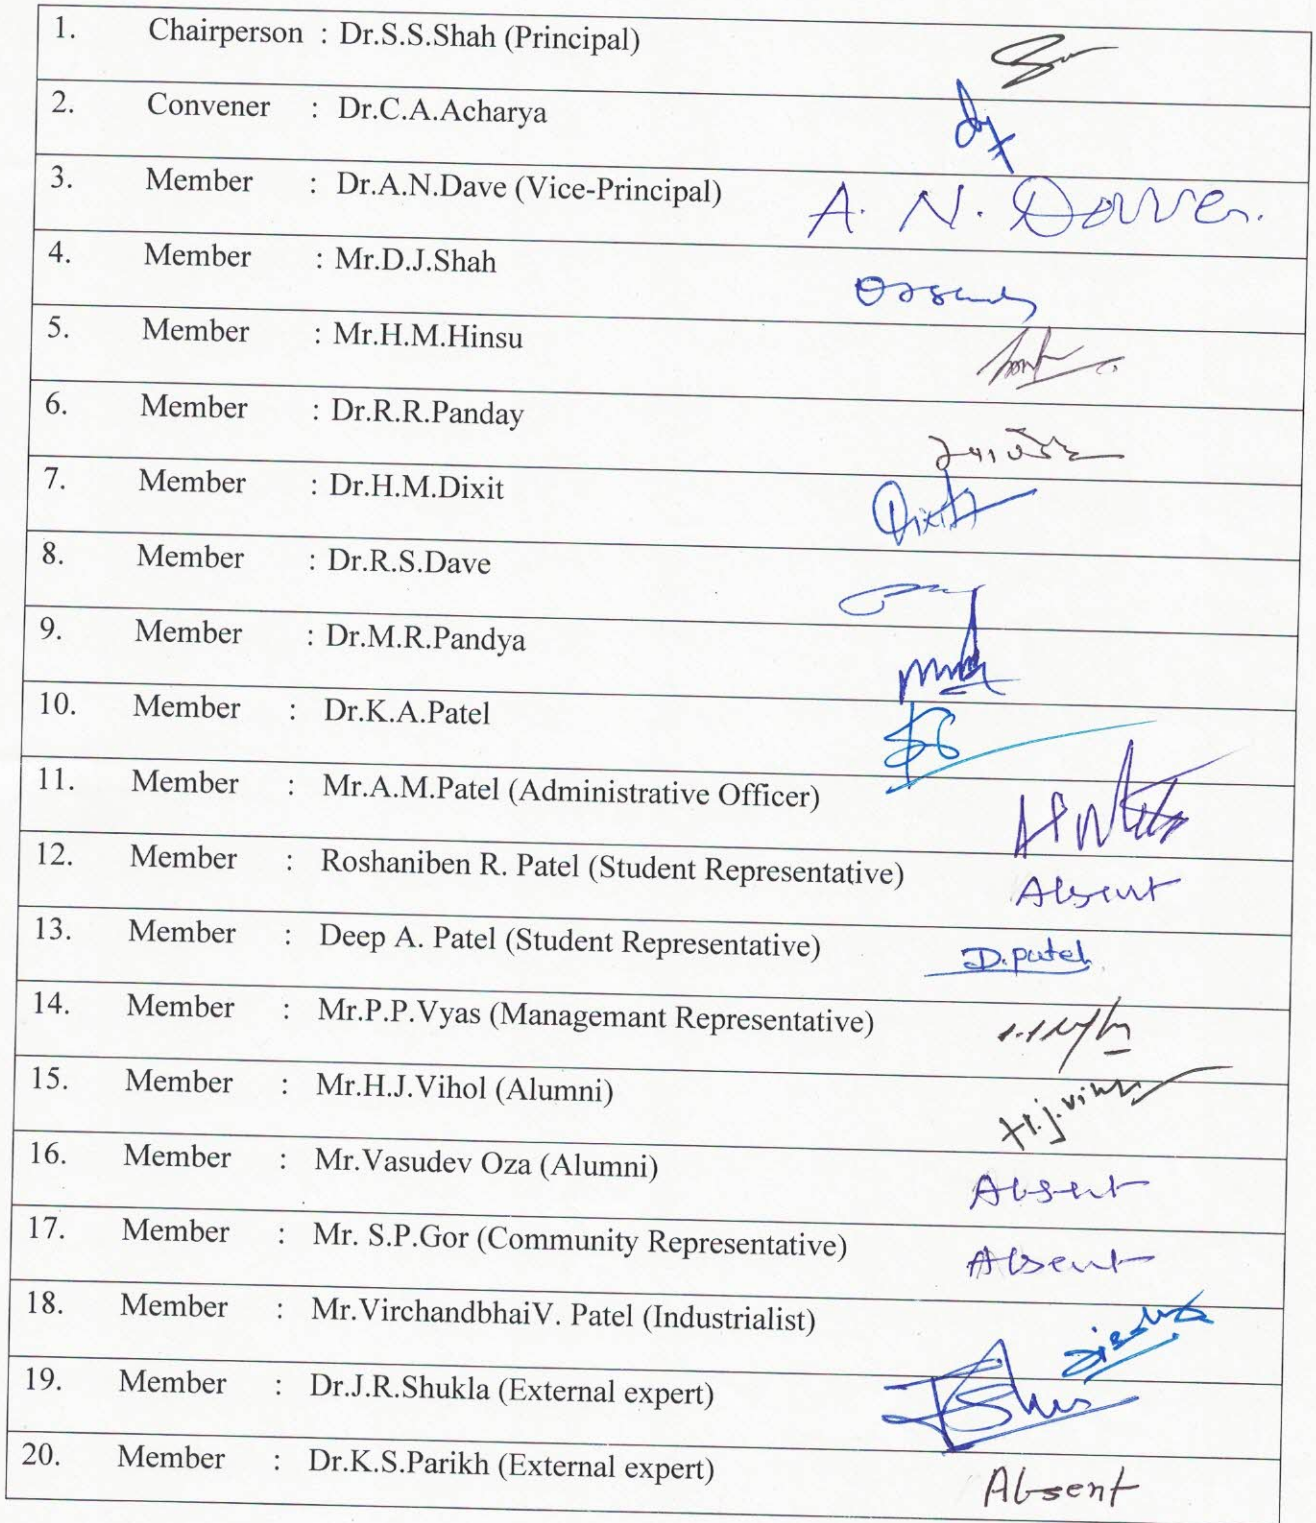 1. Chairperson : Dr.S.S.Shah (Principal)
2. Convener : Dr.C.A.Acharya
3. Member : Dr.A.N.Dave (Vice-Principal) A. N. Dave.
4. Member : Mr.D.J.Shah
5. Member : Mr.H.M.Hinsu
6. Member : Dr.R.R.Panday
7. Member : Dr.H.M.Dixit Dixit
8. Member : Dr.R.S.Dave
9. Member : Dr.M.R.Pandya
10. Member : Dr.K.A.Patel
11. Member : Mr.A.M.Patel (Administrative Officer)
12. Member : Roshaniben R. Patel (Student Representative) Absent
13. Member : Deep A. Patel (Student Representative) D.patel
14. Member : Mr.P.P.Vyas (Managemant Representative)
15. Member : Mr.H.J.Vihol (Alumni)
16. Member : Mr.Vasudev Oza (Alumni) Absent
17. Member : Mr. S.P.Gor (Community Representative) Absent
18. Member : Mr.VirchandbhaiV. Patel (Industrialist)
19. Member : Dr.J.R.Shukla (External expert)
20. Member : Dr.K.S.Parikh (External expert) Absent